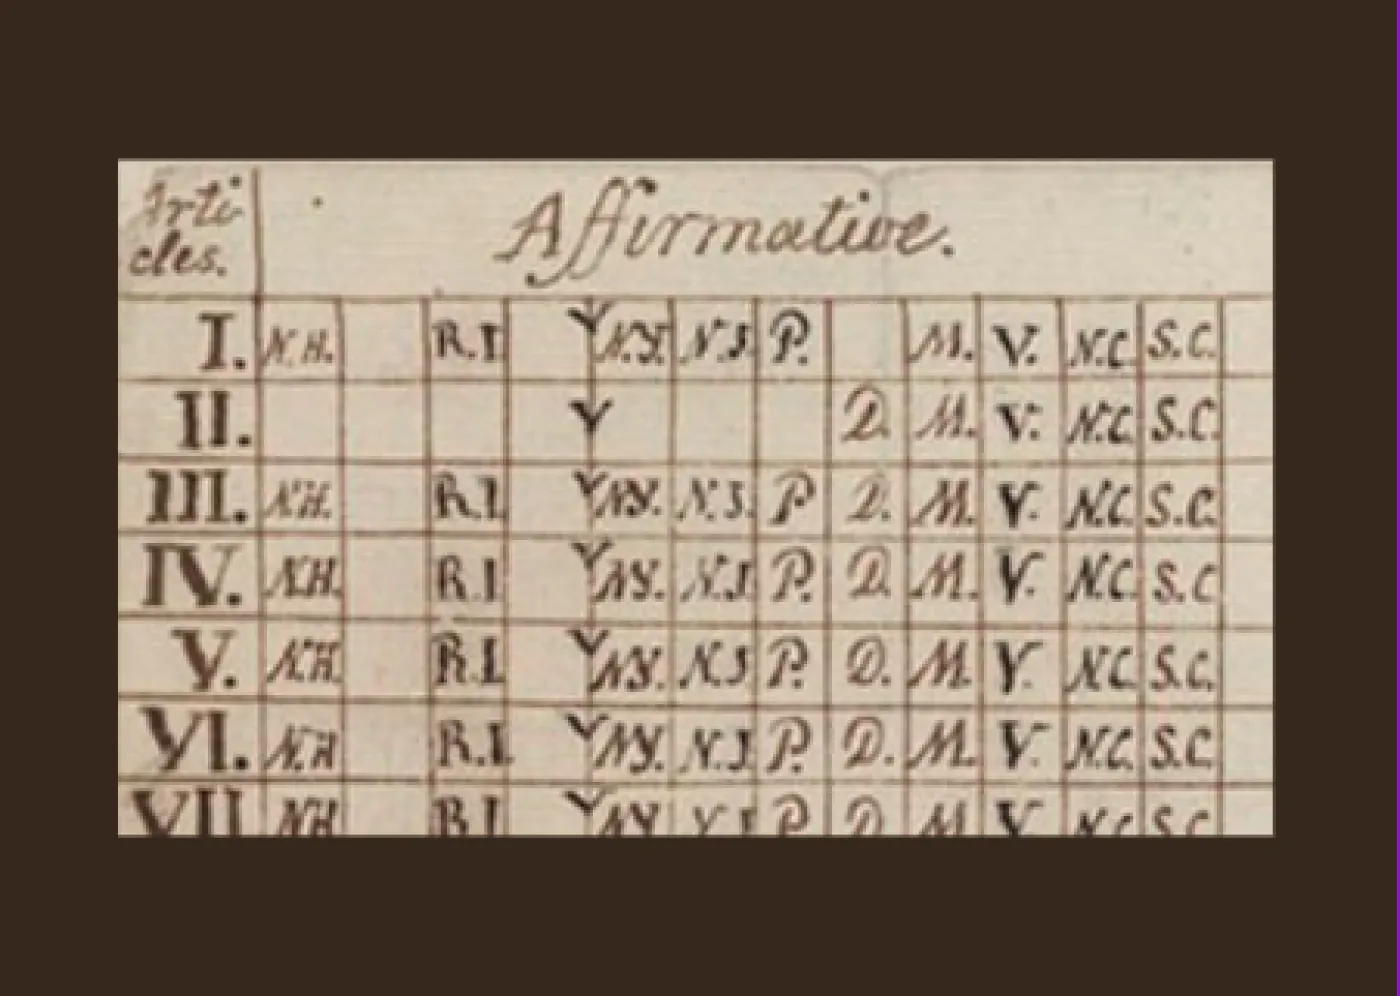 Arti
cles.
Affirmative.
I. N.H. R.I V N.Y. N.J. P. M. V. N.C. S.C.
II. V D. M. V. N.C. S.C.
III. N.H. R.I. V N.Y. N.J. P D. M. V. N.C. S.C.
IV. N.H. R.I. V N.Y. N.J. P. D. M. V. N.C. S.C
V. N.H. R.I. V N.Y. N.J P. D. M. V. N.C. S.C.
VI. N.H R.I. V N.Y. N.J P. D. M. V. N.C. S.C.
VII NH R.I V NY N.J P D M V N.C S.C